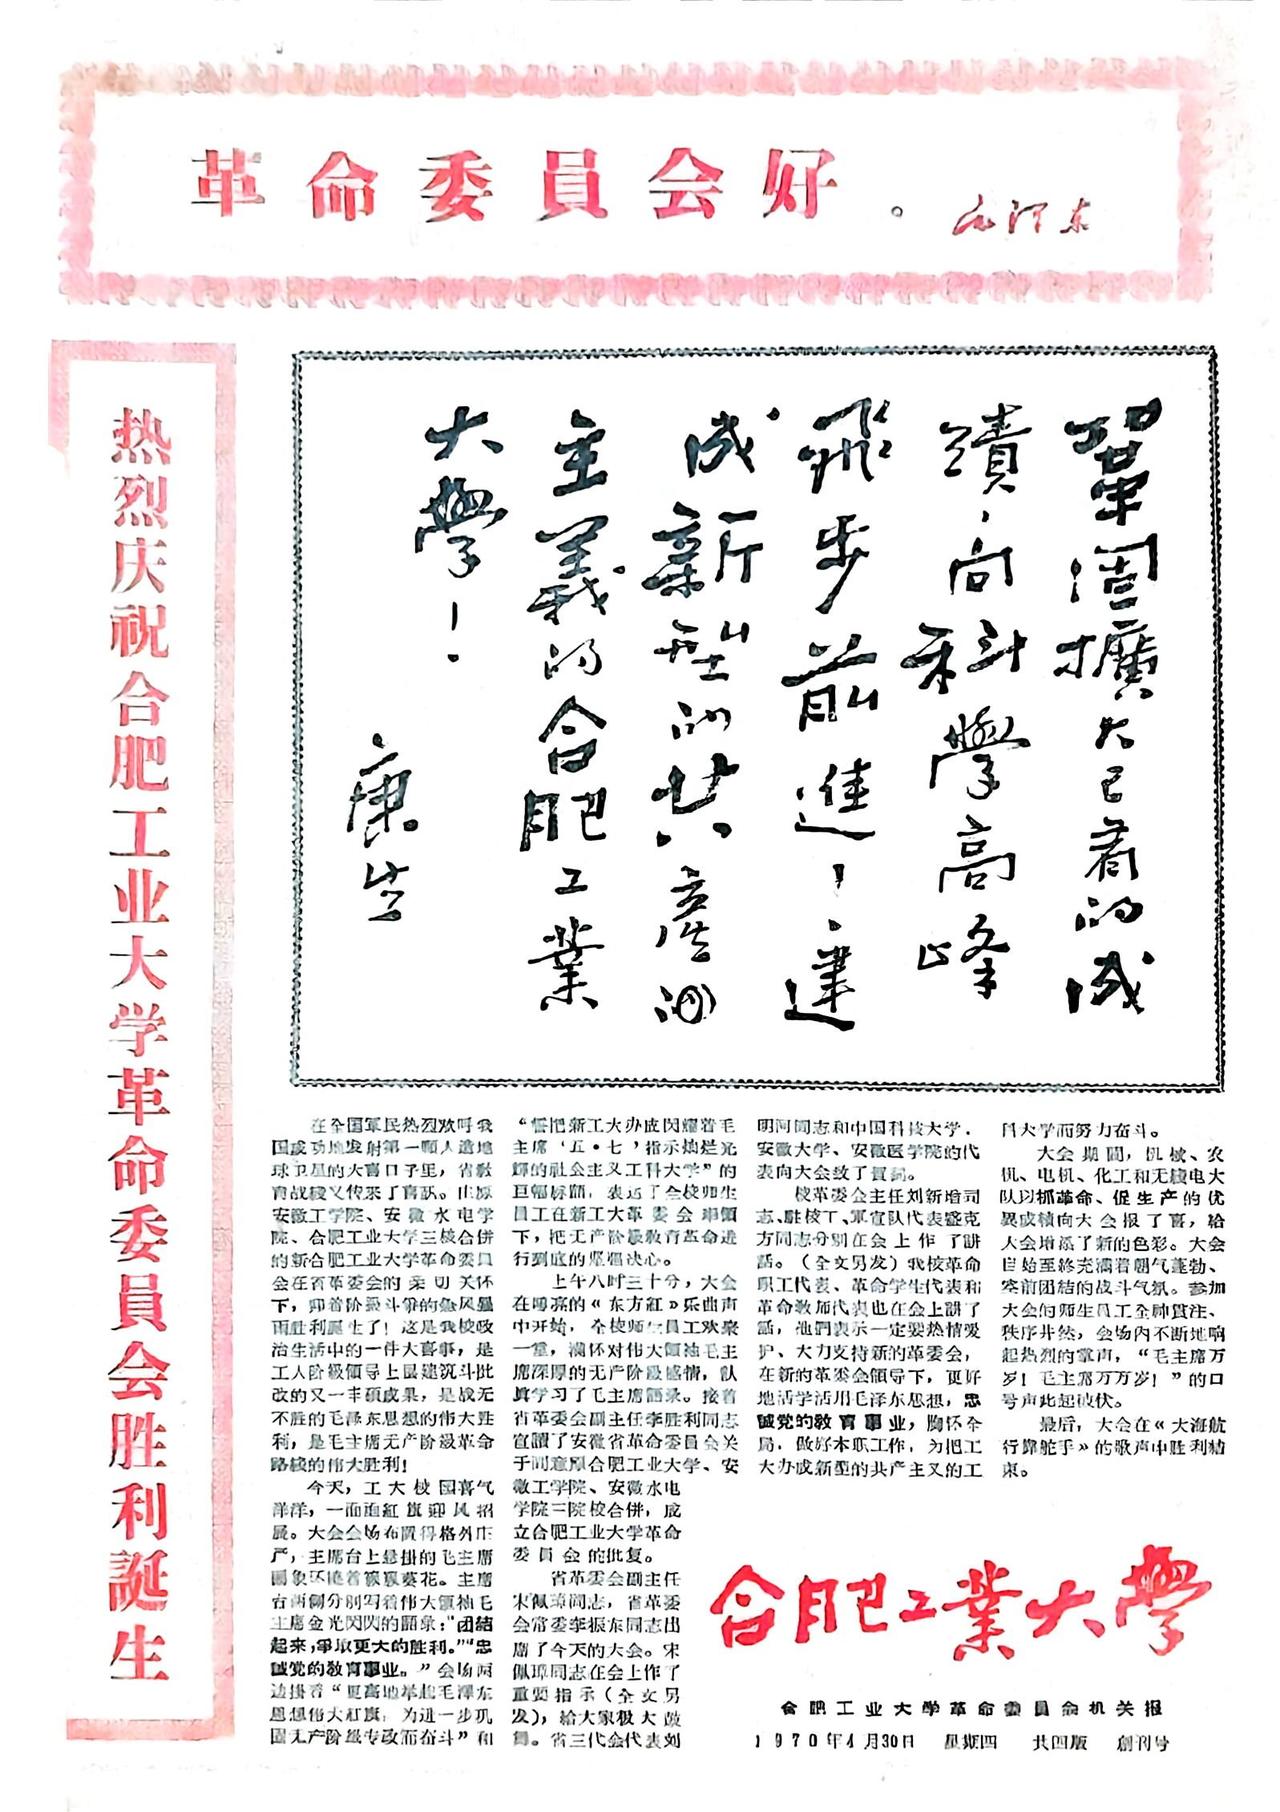 革命委員会好。毛泽东
热烈庆祝合肥工业大学革命委員会胜利誕生
鞏固擴大已有的成
績,向科學高峰
飛步前進!建
成新型的共產
主義的合肥工業
大學!
康生
在全国軍民热烈欢呼我
国成功地发射第一顆人造地
球卫星的大喜日子里,省教
育战綫又传来了喜訊。由原
安徽工学院、安徽水电学
院、合肥工业大学三校合併
的新合肥工业大学革命委員
会在省革委会的亲切关怀
下,迎着阶級斗爭的急风暴
雨胜利誕生了!这是我校政
治生活中的一件大喜事,是
工人阶級領导上层建筑斗批
改的又一丰碩成果,是战无
不胜的毛泽东思想的伟大胜
利,是毛主席无产阶級革命
路綫的伟大胜利!
今天,工大校园喜气
洋洋,一面面紅旗迎风招
展。大会会场布置得格外庄
严,主席台上悬掛的毛主席
画象环繞着簇簇葵花。主席
台两侧分别写着伟大領袖毛
主席金光閃閃的語彔:“团結
起来,爭取更大的胜利。”“忠
誠党的教育事业。”会场两
边掛着“更高地举起毛泽东
思想伟大紅旗,为进一步巩
固无产阶級专政而奋斗”和
“誓把新工大办成閃耀着毛
主席‘五·七’指示灿烂光
輝的社会主义工科大学”的
巨幅标語,表达了全校师生
員工在新工大革委会率領
下,把无产阶級教育革命进
行到底的坚强决心。
上午八时三十分,大会
在嘹亮的《东方紅》乐曲声
中开始,全校师生員工欢聚
一堂,满怀对伟大領袖毛主
席深厚的无产阶級感情,认
眞学习了毛主席語彔。接着
省革委会副主任李胜利同志
宣讀了安徽省革命委員会关
于同意原合肥工业大学、安
徽工学院、安徽水电
学院三院校合併,成
立合肥工业大学革命
委員会的批复。
省革委会副主任
宋佩璋同志,省革委
会常委李振东同志出
席了今天的大会。宋
佩璋同志在会上作了
重要指示(全文另
发),給大家极大鼓
舞。省三代会代表刘
明河同志和中国科技大学、
安徽大学、安徽医学院的代
表向大会致了賀詞。
校革委会主任刘新增同
志、駐校工、軍宣队代表盛克
方同志分別在会上作了讲
話。(全文另发)我校革命
职工代表、革命学生代表和
革命教师代表也在会上讲了
話,他們表示一定要热情爱
护、大力支持新的革委会,
在新的革委会領导下,更好
地活学活用毛泽东思想,忠
誠党的教育事业,胸怀全
局,做好本职工作,为把工
大办成新型的共产主义的工
科大学而努力奋斗。
大会期間,机械、农
机、电机、化工和无綫电大
队以抓革命、促生产的优
异成績向大会报了喜,給
大会增添了新的色彩。大会
自始至終充满着朝气蓬勃、
空前团結的战斗气氛。参加
大会的师生員工全神貫注、
秩序井然,会场内不断地响
起热烈的掌声,“毛主席万
岁!毛主席万万岁!”的口
号声此起彼伏。
最后,大会在《大海航
行靠舵手》的歌声中胜利結
束。
合肥工業大學
合肥工业大学革命委員会机关报
1970年4月30日 星期四 共四版 創刊号